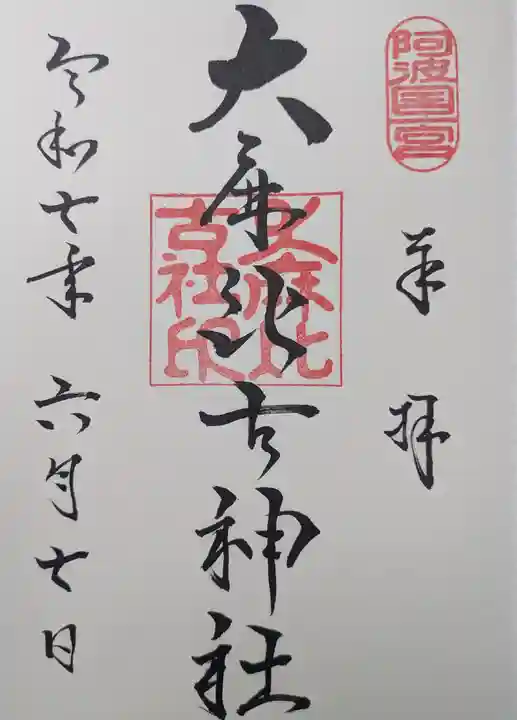 阿波国一宮
奉拝
大麻比古神社
大麻比
古社印
令和七年 六月七日